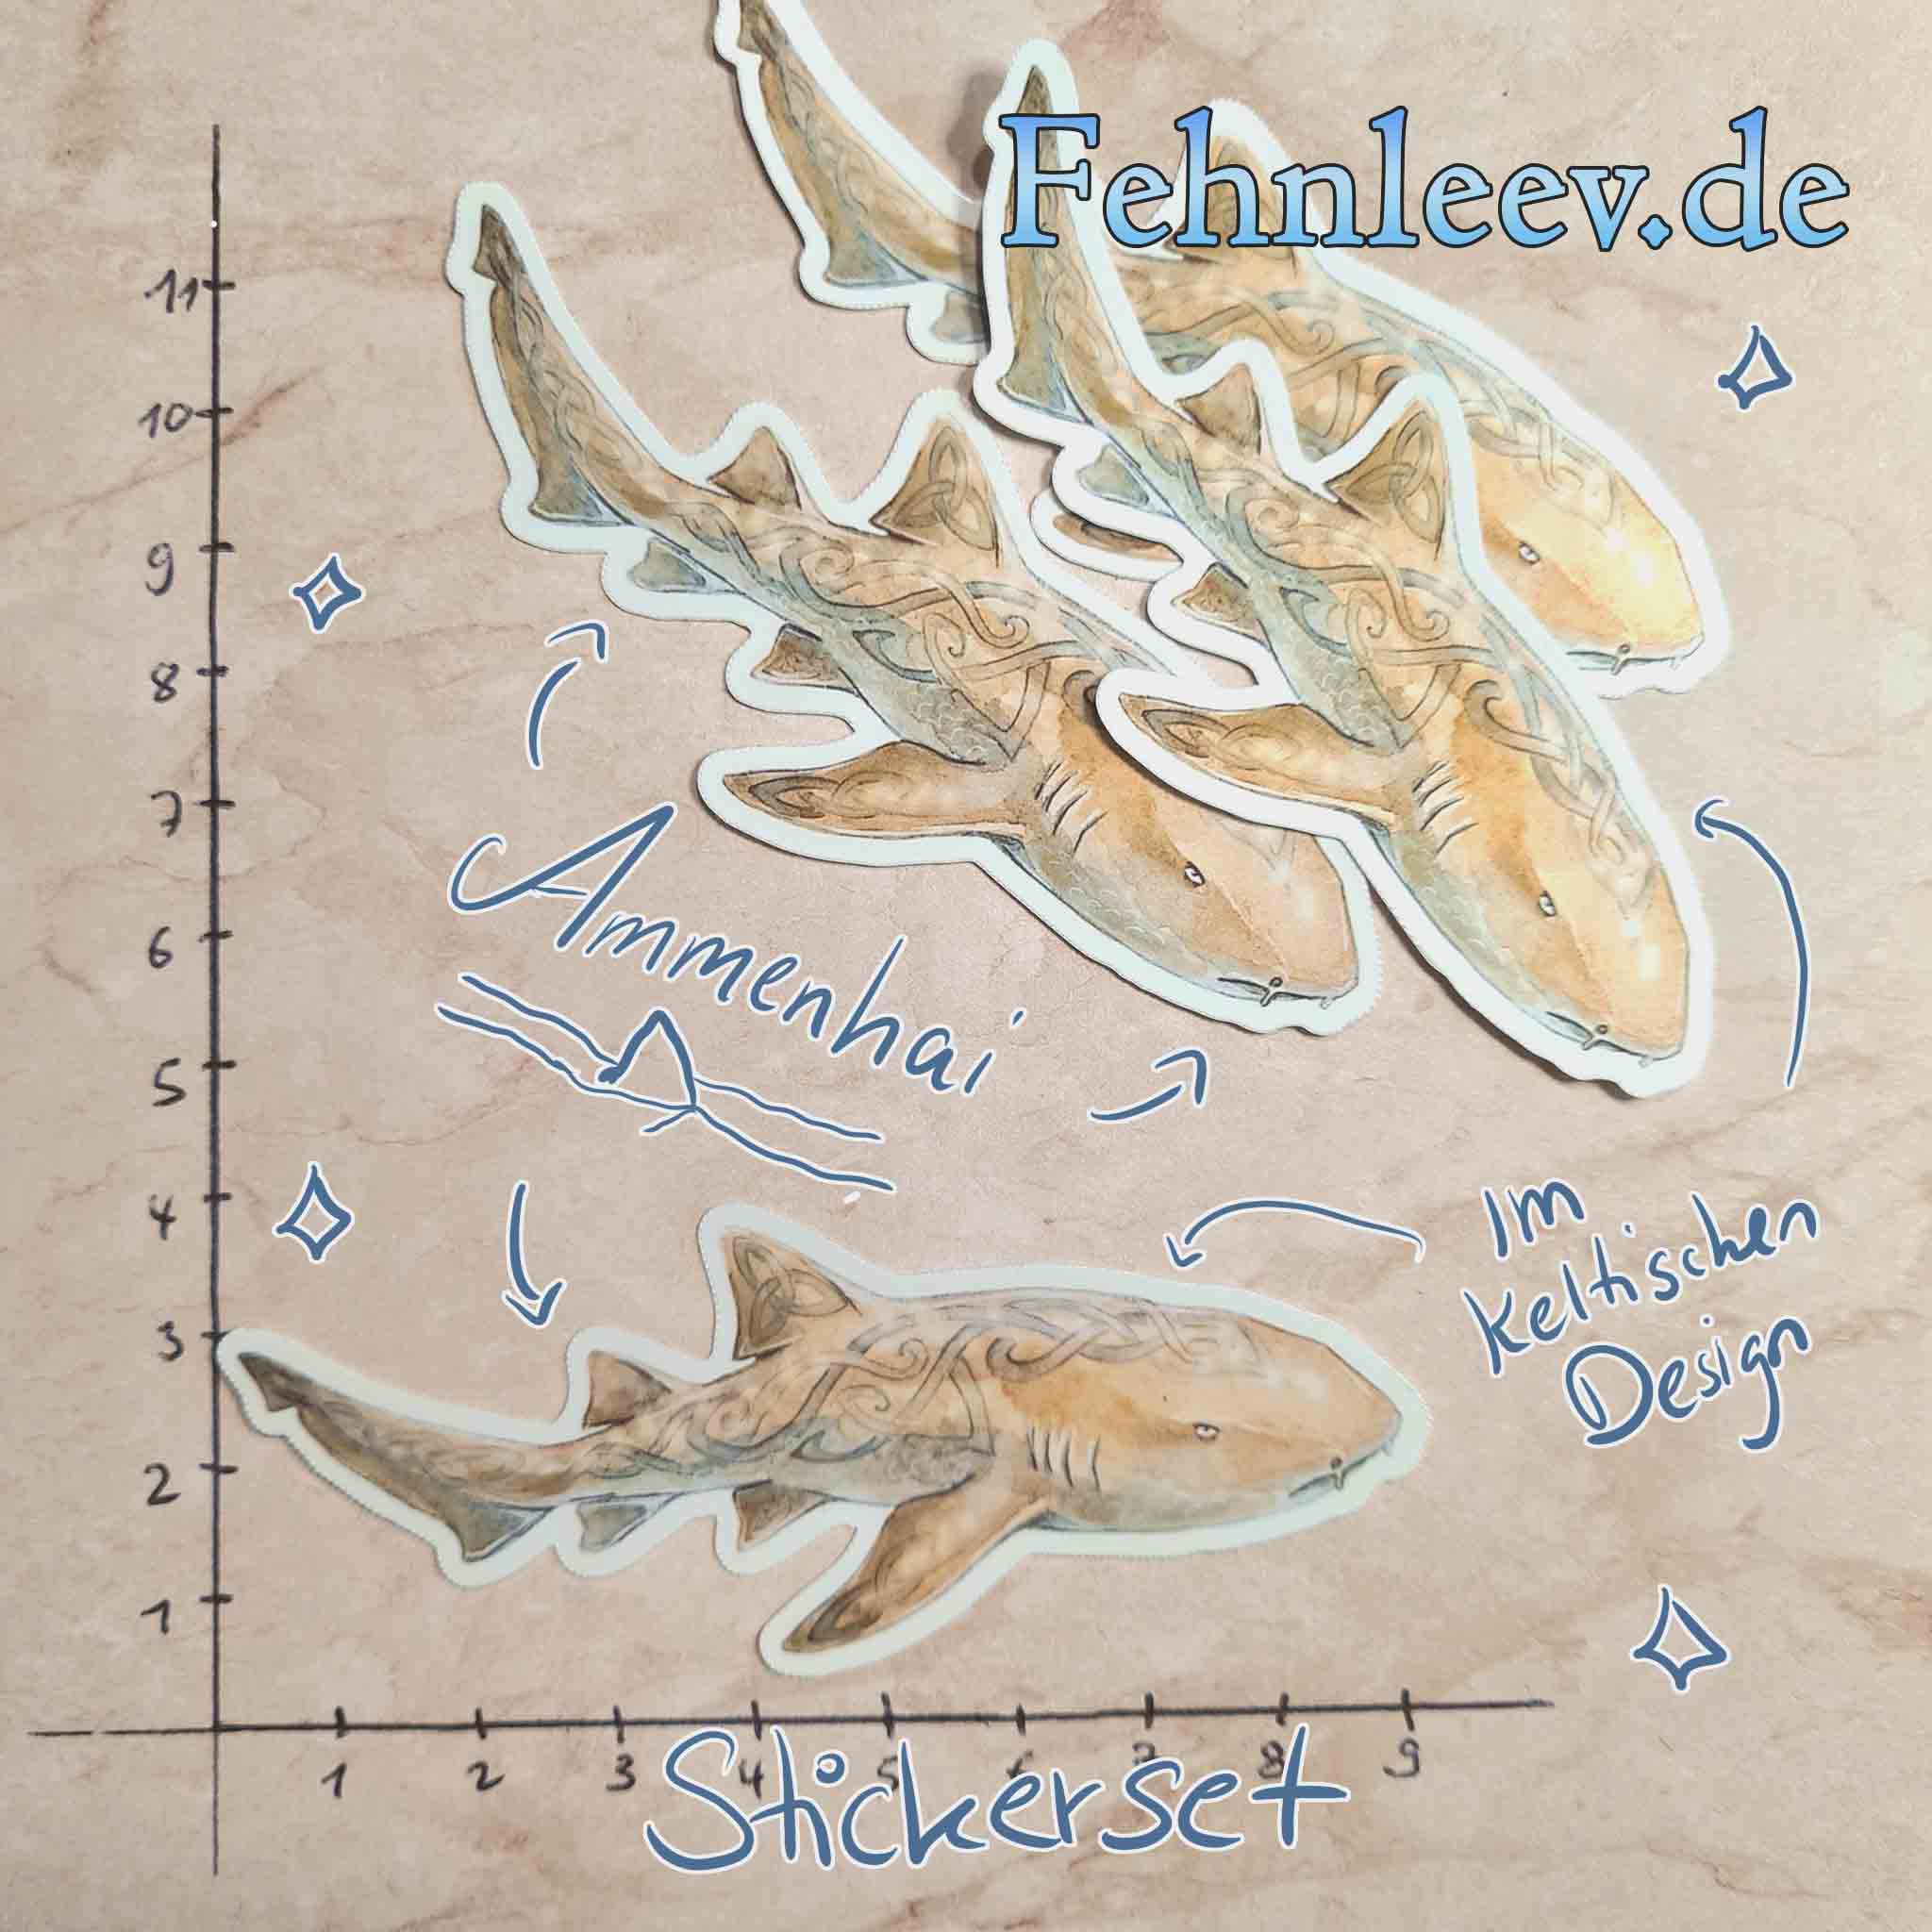 Fehnleev.de
11
10
9
8
7
6
5
4
3
2
1
Ammenhai
Im
Keltischen
Design
1 2 3 4 5 6 7 8 9
Stickerset